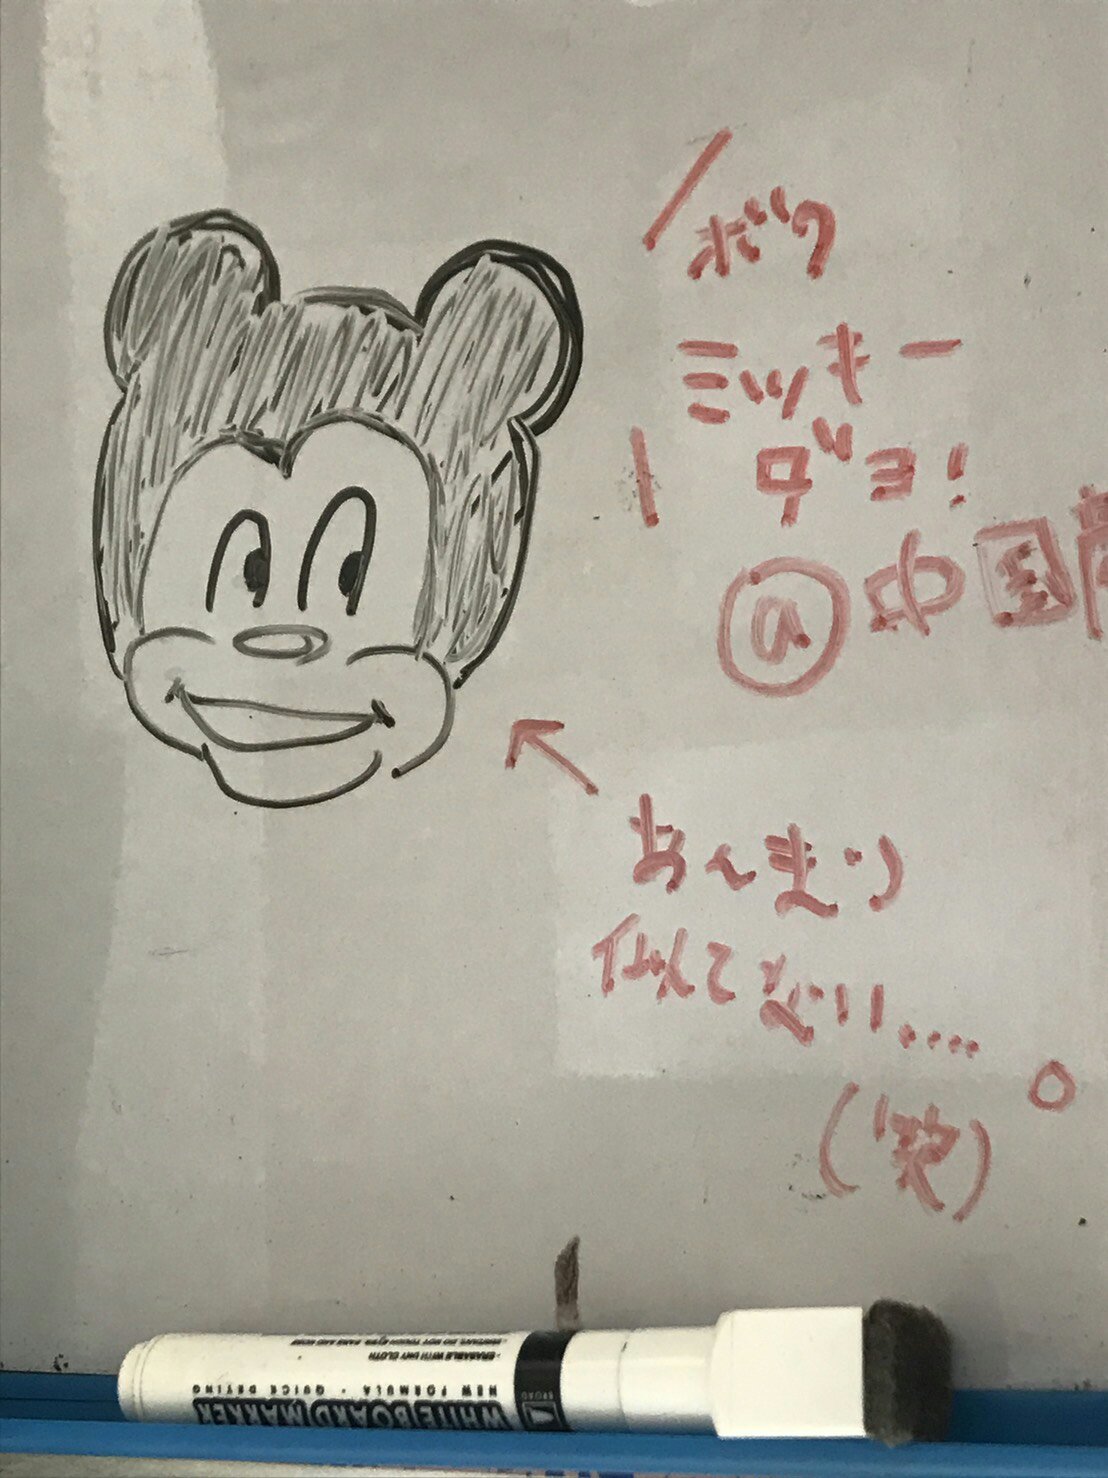 ボク
ミッキー
ダヨ!
@中国
あんまり
似てない....。
(笑)
WHITEBOARD MARKER
NEW FORMULA • QUICK DRYING
• ERASABLE WITH DRY CLOTH
BROAD